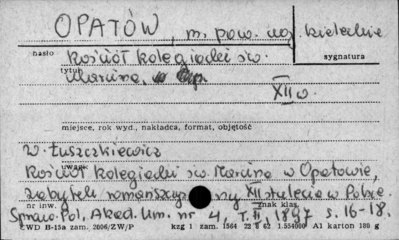 OPATÓW, m. pow. woj. kieleckie
hasło Kościół kolegiacki św. sygnatura
tytuł Marcina,
XII w.
miejsce, rok wyd., nakładca, format, objętość
W. Łuszczkiewicz
uwagi
Kościół kolegiacki św. Marcina w Opatowie,
zabytek romańszczyzny XII stulecia w Polsce.
nr inw. znak klas.
Spraw. Pol. Akad. Um. nr 4, T. II, 1897 s. 16-18.
CWD B-15a zam. 2006/ZW/P kzg 1 zam. 1564 22 8 62 1.554000 A1 karton 180 g